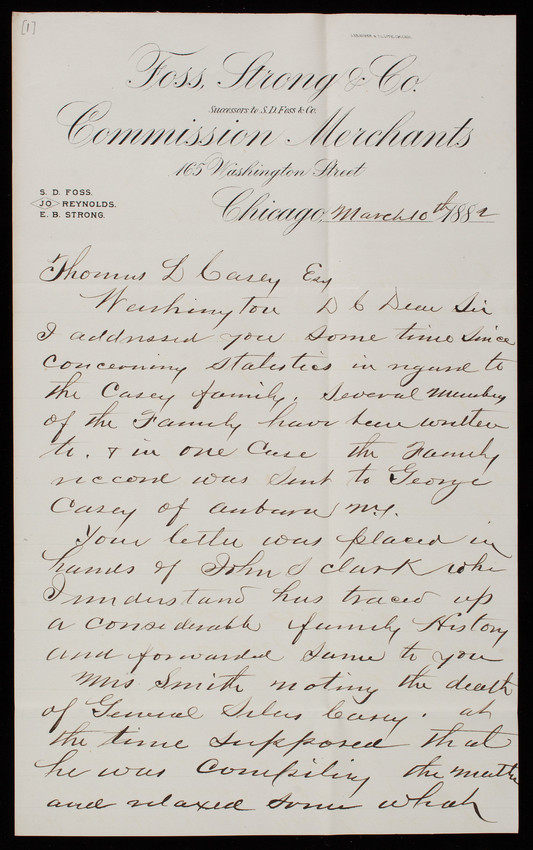 [1]
Foss, Strong & Co.
Successors to S. D. Foss & Co.
Commission Merchants
165 Washington Street
S. D. FOSS.
JO REYNOLDS.
E. B. STRONG.
Chicago, March 10th 1882
Thomas L Casey Esq
Washington D C Dear Sir
I addressed you some time since
concerning statistics in regard to
the Casey family. Several members
of the Family have been written
to. & in one Case the Family
reccord was sent to George
Casey of auburn N.Y.
Your letter was placed in
hands of John S Clark who
I understand has traced up
a considerable family History
and forwarded same to you
Mrs Smith noting the death
of General Silas Casey. at
the time supposed that
he was compiling the matter
and relaxed some what